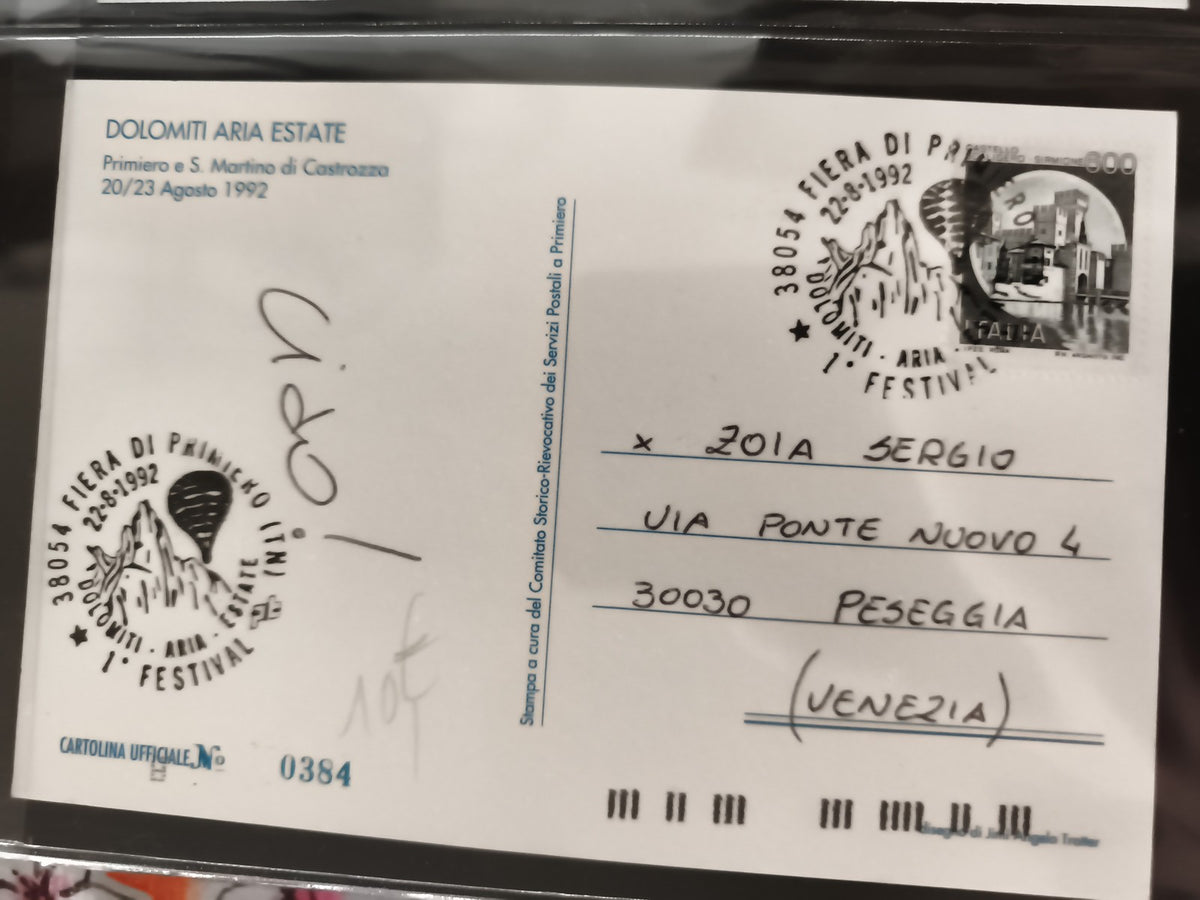 DOLOMITI ARIA ESTATE
Primiero e S. Martino di Castrozza
20/23 Agosto 1992
CASTELLO
SIRMIONE 600
ITALIA
38054 FIERA DI PRIMIERO
22-8-1992
DOLOMITI - ARIA -
1° FESTIVAL
Ciao!
Stampa a cura del Comitato Storico-Rievocativo dei Servizi Postali a Primiero
x ZOIA SERGIO
VIA PONTE NUOVO 4
30030 PESEGGIA
(VENEZIA)
38054 FIERA DI PRIMIERO (TN)
22-8-1992
DOLOMITI - ARIA - ESTATE
1° FESTIVAL
10€
CARTOLINA UFFICIALE No 0384
disegno di Jimi Angelo Trotter